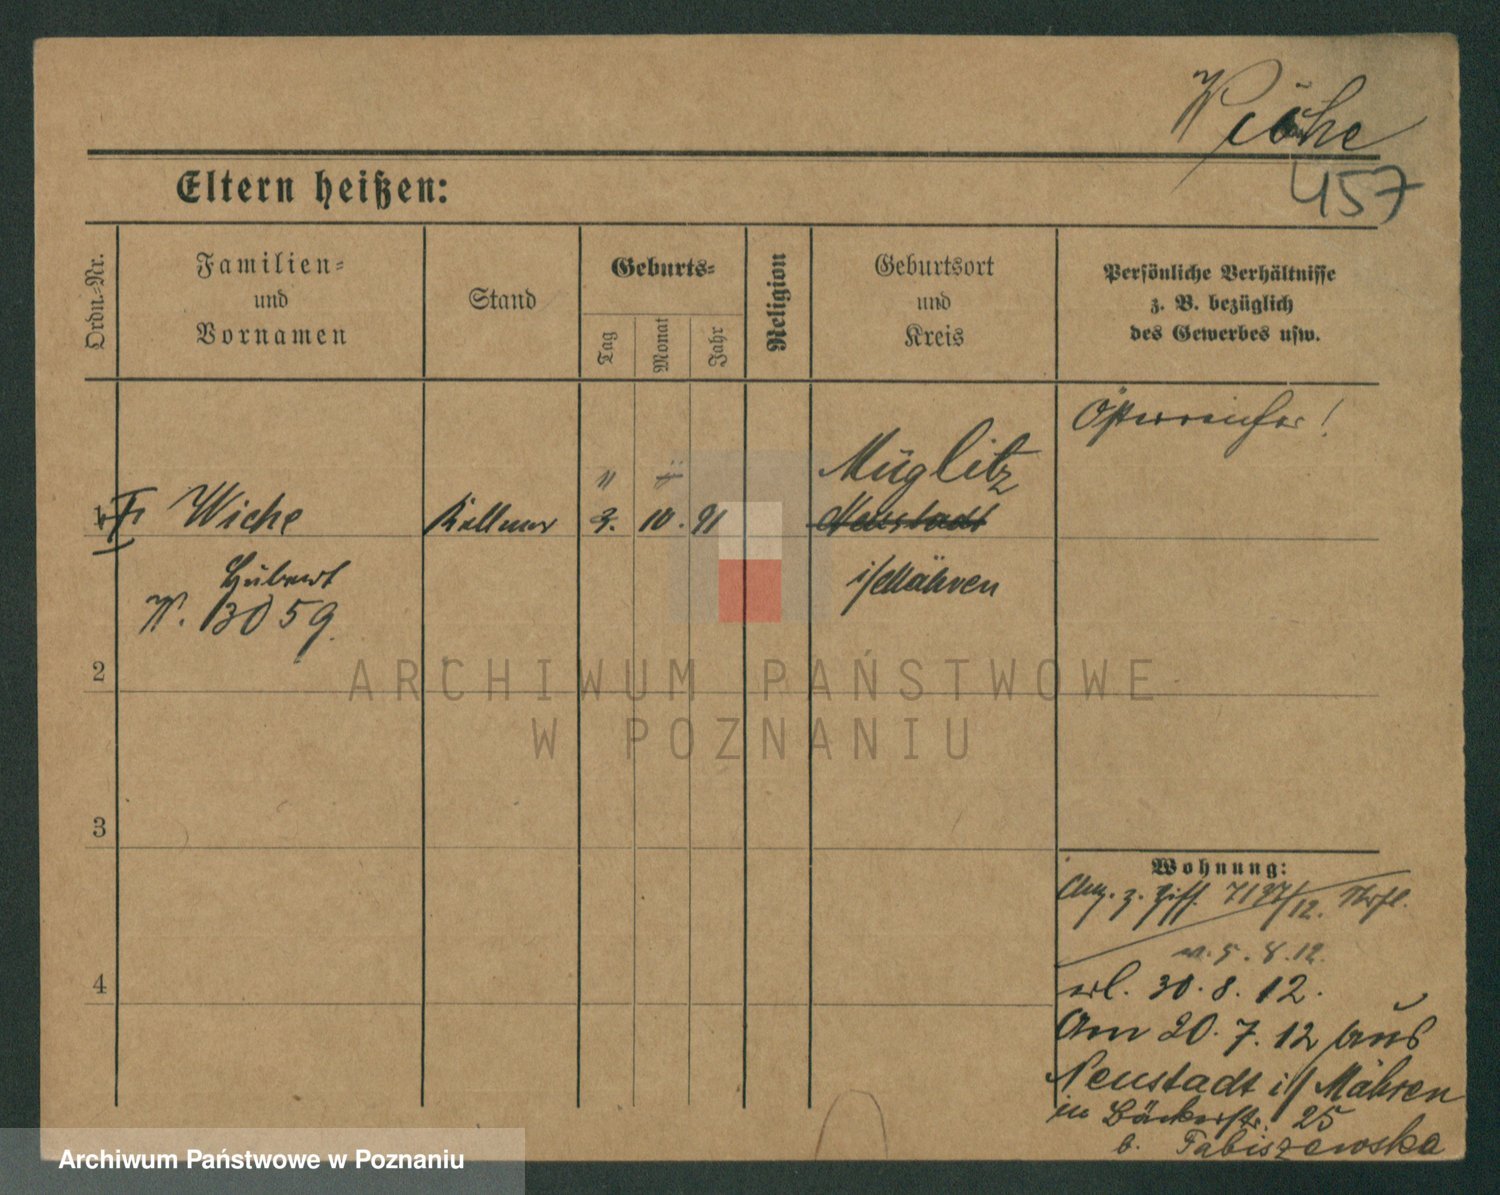 Wiche
457
Eltern heißen:
Ordn.-Nr.
Familien-
und
Vornamen
Stand
Geburts-
Tag
Monat
Jahr
Religion
Geburtsort
und
Kreis
Persönliche Verhältnisse
z. B. bezüglich
des Gewerbes usw.
Österreicher!
" "
Müglitz
1 Wiche Kellner 3. 10. 91 Neustadt
i/Mähren
Hubert
W. 3059.
2
3
4
Wohnung:
z. Ziff. 7127/12.
5.8.12.
erl. 30.8.12.
Am 20.7.12 aus
Neustadt i/Mähren
in Bäckerstr. 25
b. Fabiszewska
ARCHIWUM PAŃSTWOWE
W POZNANIU
Archiwum Państwowe w Poznaniu